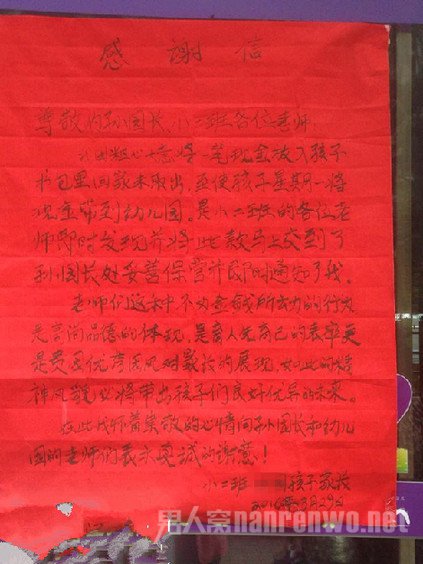 感谢信
尊敬的孙园长、小二班各位老师
我因粗心大意将一笔现金放入孩子
书包里因故未取出,至使孩子星期一将
现金带到幼儿园。是小二班的各位老
师即时发现并将此款马上交到了
孙园长处妥善保管并即时通知了我。
老师们这种不为金钱所动的行为
是高尚品德的体现,是育人先育己的表率更
是贵园优秀园风对教育的展现,如此的精
神风貌必将带出孩子们良好优异的未来。
在此我怀着崇敬的心情向孙园长和幼儿
园的老师们表示真诚的谢意!
小二班 孩子家长
2016年3月29日
男人窝nanrenwo.net